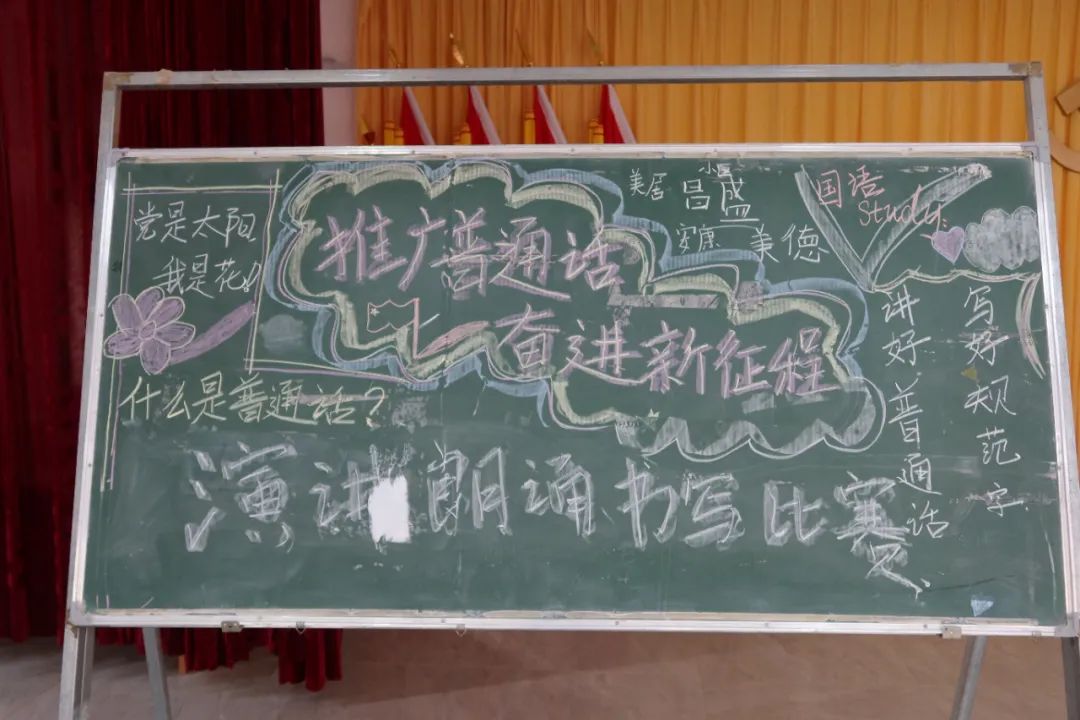 党是太阳
我是花!
推广普通话
奋进新征程
美居
昌盛
安康
美德
国语
study
什么是普通话?
演讲朗诵书写比赛
讲好普通话
写好规范字